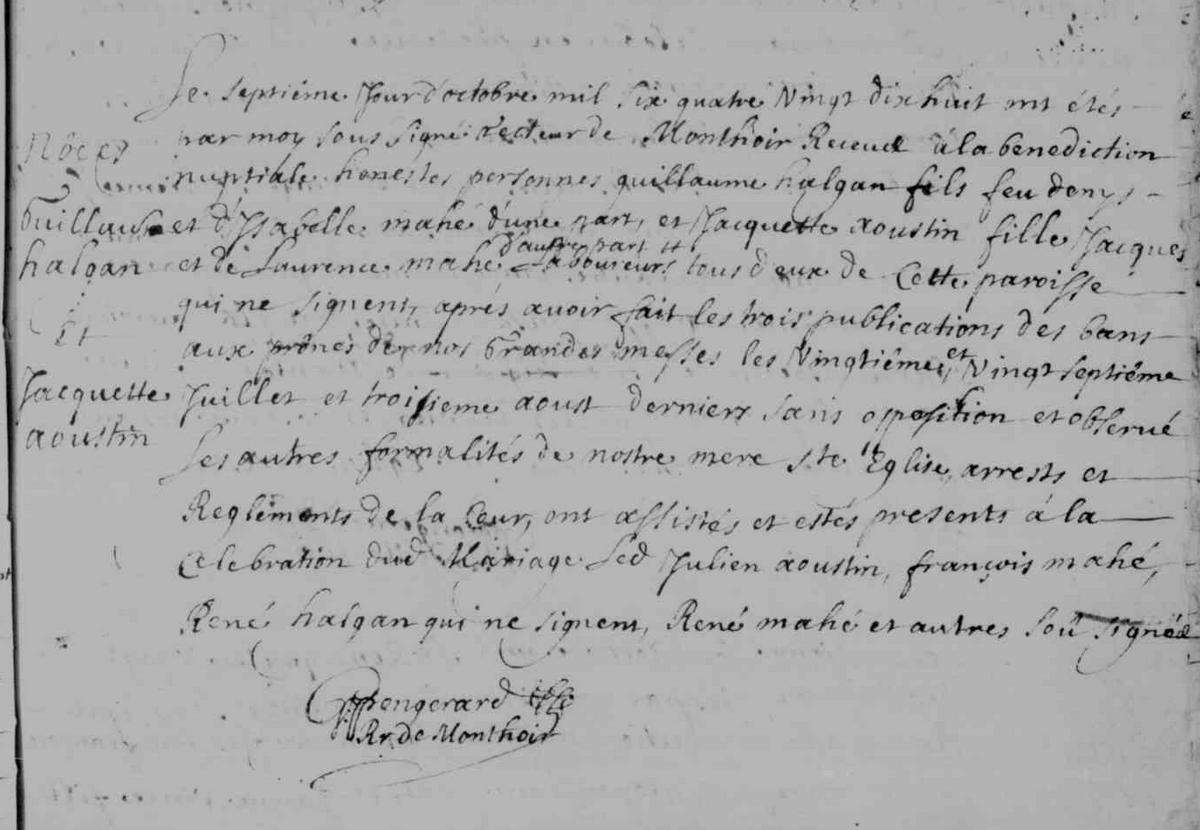 Le septiéme Jour d'octobre mil six quatre Vingt dix huit ont étés
par moy sous signé recteur de Monthoir Receus à la benediction
nuptiale honestes personnes guillaume halgan fils feu denys
et d'Ysabelle mahé d'une part, et Jacquette aoustin fille Jacques
d'autre part
et de Laurence mahé Laboureurs tous deux de Cette paroisse
qui ne signent, aprés avoir fait les trois publications des bans
aux prônes de nos Grandes messes les Vingtiéme, et Vingt septiéme
Juillet et troisieme aoust derniers sans oposition et observé
Les autres formalités de nostre mere ste Eglise, arrests et
Reglements de la Cour, ont assistés et estés presents à la
Celebration dud Mariage Led Julien aoustin, françois mahé,
René halgan qui ne signent, René mahé et autres sou signés
Nôces
Guillaume
halgan
Et
Jacquette
aoustin
Rr de Monthoir